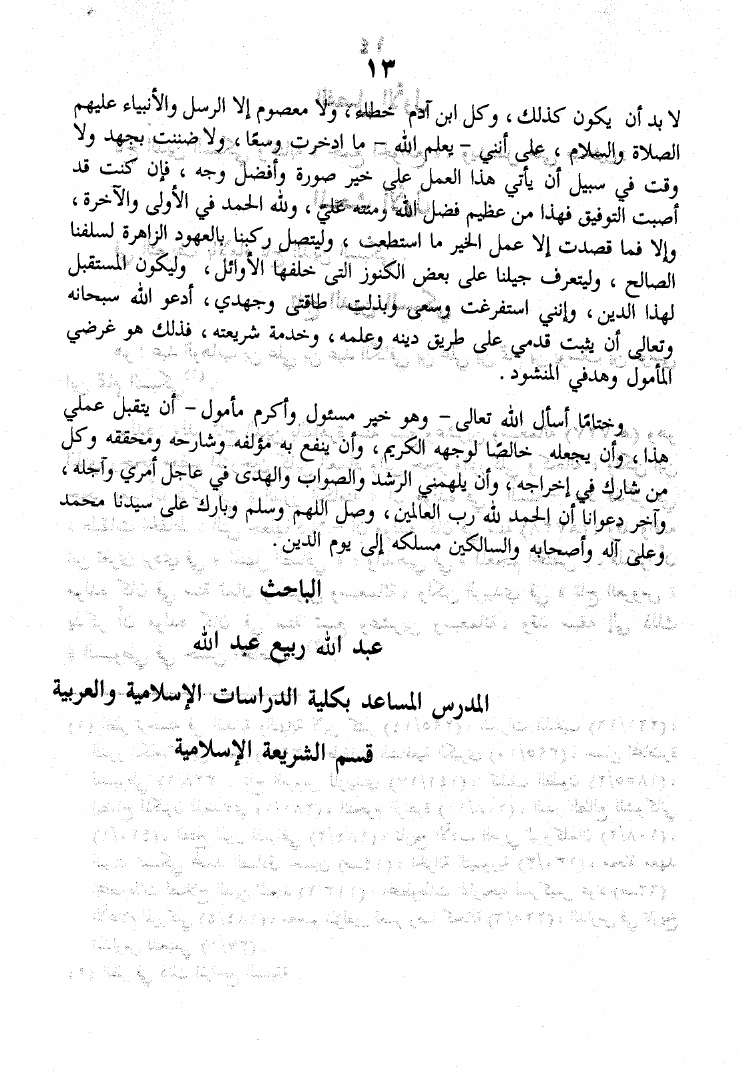 ١٣
لا بد أن يكون كذلك، وكل ابن آدم خطاء، ولا معصوم إلا الرسل والأنبياء عليهم
الصلاة والسلام، على أنني - يعلم الله - ما ادخرت وسعًا، ولا ضننت بجهد ولا
وقت في سبيل أن يأتي هذا العمل على خير صورة وأفضل وجه، فإن كنت قد
أصبت التوفيق فهذا من عظيم فضل الله ومنته عليّ، ولله الحمد في الأولى والآخرة،
وإلا فما قصدت إلا عمل الخير ما استطعت، وليتصل ركبنا بالعهود الزاهرة لسلفنا
الصالح، وليتعرف جيلنا على بعض الكنوز التى خلفها الأوائل، وليكون المستقبل
لهذا الدين، وإنني استفرغت وسعى وبذلت طاقتى وجهدي، أدعو الله سبحانه
وتعالى أن يثبت قدمي على طريق دينه وعلمه، وخدمة شريعته، فذلك هو غرضي
المأمول وهدفي المنشود.
وختامًا أسأل الله تعالى - وهو خير مسئول وأكرم مأمول - أن يتقبل عملي
هذا، وأن يجعله خالصًا لوجهه الكريم، وأن ينفع به مؤلفه وشارحه ومحققه وكل
من شارك في إخراجه، وأن يلهمني الرشد والصواب والهدى في عاجل أمري وآجله،
وآخر دعوانا أن الحمد لله رب العالمين، وصل اللهم وسلم وبارك على سيدنا محمد
وعلى آله وأصحابه والسالكين مسلكه إلى يوم الدين.
الباحث
عبد الله ربيع عبد الله
المدرس المساعد بكلية الدراسات الإسلامية والعربية
قسم الشريعة الإسلامية